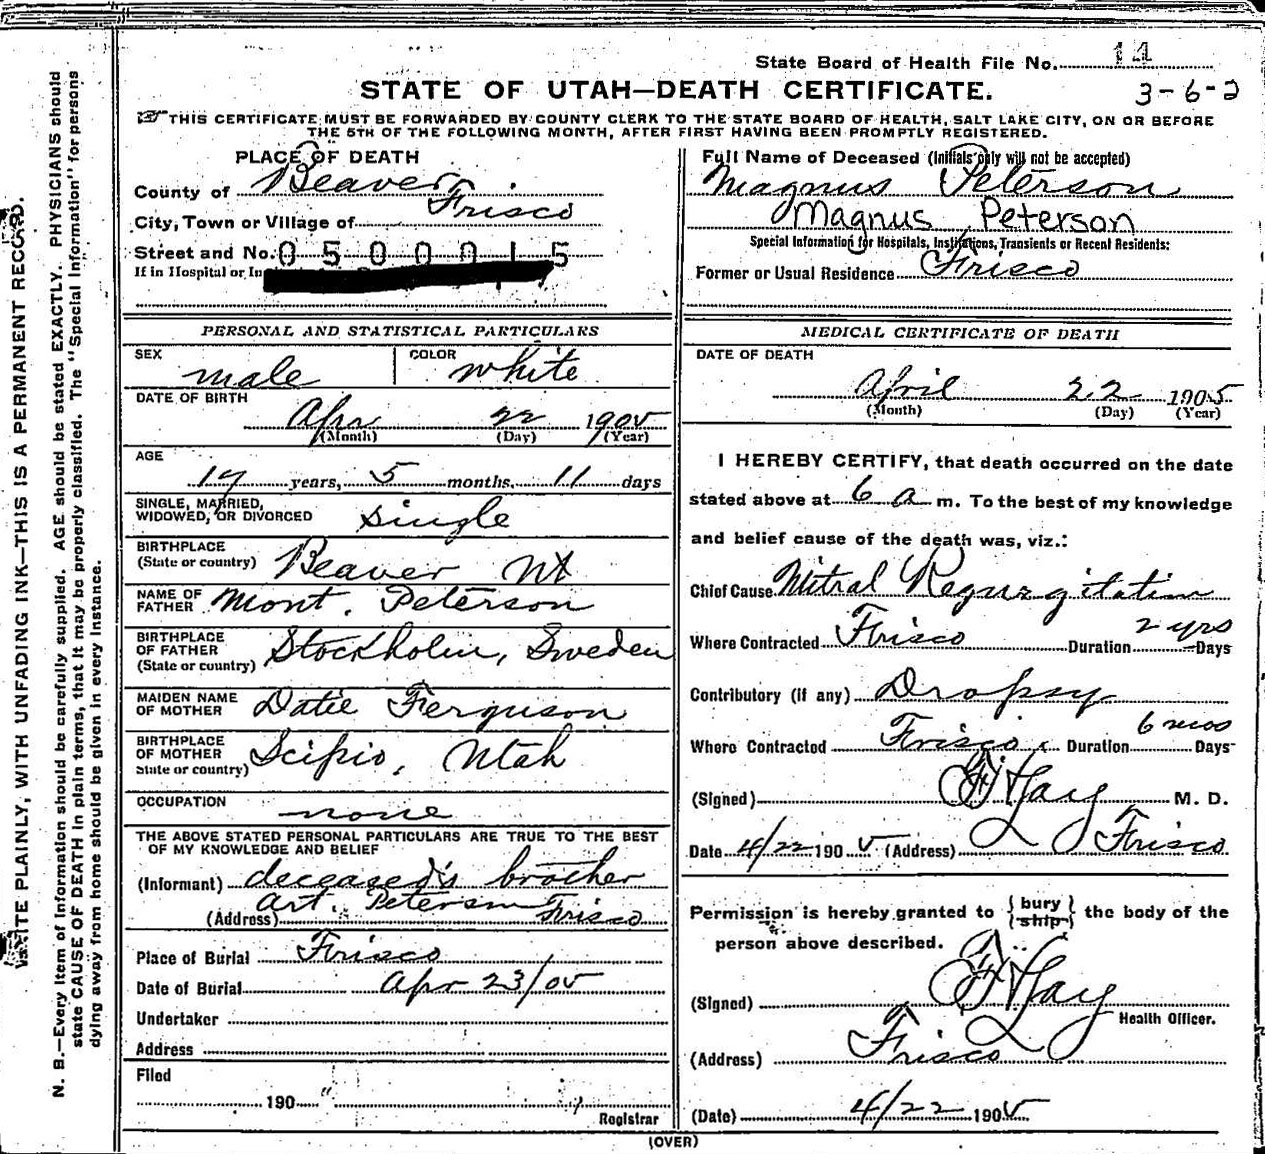 State Board of Health File No. 14
STATE OF UTAH—DEATH CERTIFICATE.
3-6-2
THIS CERTIFICATE MUST BE FORWARDED BY COUNTY CLERK TO THE STATE BOARD OF HEALTH, SALT LAKE CITY, ON OR BEFORE
THE 5TH OF THE FOLLOWING MONTH, AFTER FIRST HAVING BEEN PROMPTLY REGISTERED.
PLACE OF DEATH
County of Beaver
City, Town or Village of Frisco
Street and No. 0500015
If in Hospital or In
Full Name of Deceased (Initials only will not be accepted)
Magnus Peterson
Magnus Peterson
Special Information for Hospitals, Institutions, Transients or Recent Residents:
Former or Usual Residence Frisco
PERSONAL AND STATISTICAL PARTICULARS
SEX male
COLOR white
DATE OF BIRTH
Apr 22 1905
(Month) (Day) (Year)
AGE
17 years, 5 months, 11 days
SINGLE, MARRIED,
WIDOWED, OR DIVORCED single
BIRTHPLACE
(State or country) Beaver Ut
NAME OF
FATHER Mont. Peterson
BIRTHPLACE
OF FATHER
(State or country) Stockholm, Sweden
MAIDEN NAME
OF MOTHER Datie Ferguson
BIRTHPLACE
OF MOTHER
State or country) Scipio, Utah
OCCUPATION none
THE ABOVE STATED PERSONAL PARTICULARS ARE TRUE TO THE BEST
OF MY KNOWLEDGE AND BELIEF
(Informant) deceased's brother
Art. Peterson
(Address) Frisco
Place of Burial Frisco
Date of Burial Apr 23/05
Undertaker
Address
Filed
190 "
Registrar
MEDICAL CERTIFICATE OF DEATH
DATE OF DEATH
April 22 1905
(Month) (Day) (Year)
I HEREBY CERTIFY, that death occurred on the date
stated above at 6 a m. To the best of my knowledge
and belief cause of the death was, viz.:
Chief Cause Mitral Regurgitation
Where Contracted Frisco Duration 2 yrs Days
Contributory (if any) Dropsy
Where Contracted Frisco Duration 6 mos Days
(Signed) M. D.
Date 4/22 1905 (Address) Frisco
Permission is hereby granted to {bury
{ship} the body of the
person above described.
(Signed)
Health Officer.
(Address) Frisco
(Date) 4/22 1905
(OVER)
WRITE PLAINLY, WITH UNFADING INK—THIS IS A PERMANENT RECORD.
N. B.—Every item of information should be carefully supplied. AGE should be stated EXACTLY. PHYSICIANS should
state CAUSE OF DEATH in plain terms, that it may be properly classified. The "Special Information" for persons
dying away from home should be given in every instance.